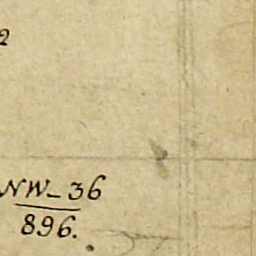 2
NW_36
896.